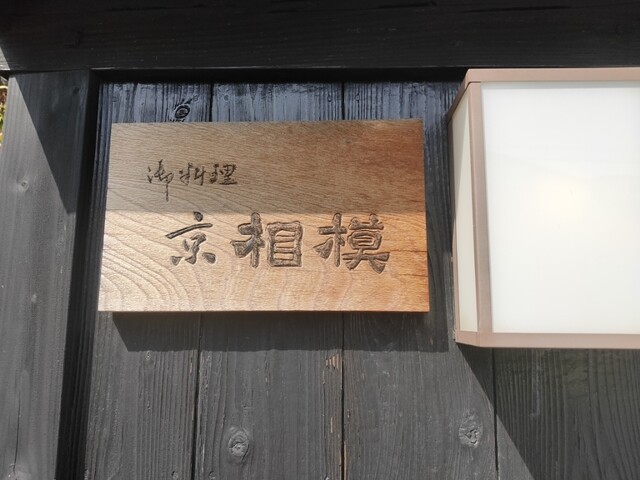 御料理
京相模